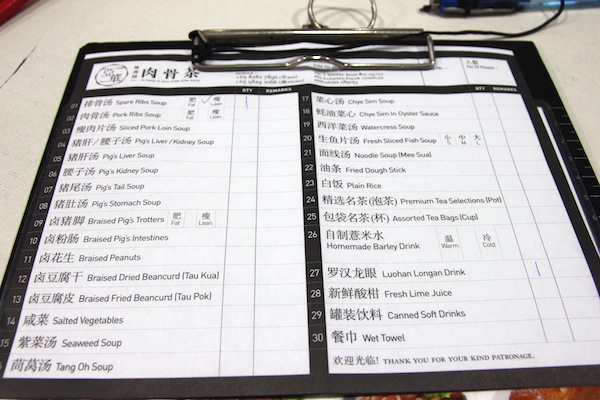 肉骨茶
QTY REMARKS
01 排骨汤 Spare Ribs Soup 肥 Fat 瘦 Lean
02 肉骨汤 Pork Ribs Soup
03 瘦肉片汤 Sliced Pork Loin Soup
04 猪肝/腰子汤 Pig's Liver/Kidney Soup
05 猪肝汤 Pig's Liver Soup
06 腰子汤 Pig's Kidney Soup
07 猪尾汤 Pig's Tail Soup
08 猪肚汤 Pig's Stomach Soup
09 卤猪脚 Braised Pig's Trotters 肥 Fat 瘦 Lean
10 卤粉肠 Braised Pig's Intestines
11 卤花生 Braised Peanuts
12 卤豆腐干 Braised Dried Beancurd (Tau Kua)
13 卤豆腐皮 Braised Fried Beancurd (Tau Pok)
14 咸菜 Salted Vegetables
15 紫菜汤 Seaweed Soup
茼莴汤 Tang Oh Soup
人数
No. of People
QTY REMARKS
17 菜心汤 Chye Sim Soup
18 蚝油菜心 Chye Sim In Oyster Sauce
19 西洋菜汤 Watercress Soup
20 生鱼片汤 Fresh Sliced Fish Soup 小 S 中 M 大 L
21 面线汤 Noodle Soup (Mee Sua)
22 油条 Fried Dough Stick
23 白饭 Plain Rice
24 精选名茶(泡茶) Premium Tea Selections (Pot)
25 包袋名茶(杯) Assorted Tea Bags (Cup)
26 自制薏米水 Homemade Barley Drink 温 Warm 冷 Cold
27 罗汉龙眼 Luohan Longan Drink
28 新鲜酸柑 Fresh Lime Juice
29 罐装饮料 Canned Soft Drinks
30 餐巾 Wet Towel
欢迎光临! THANK YOU FOR YOUR KIND PATRONAGE.